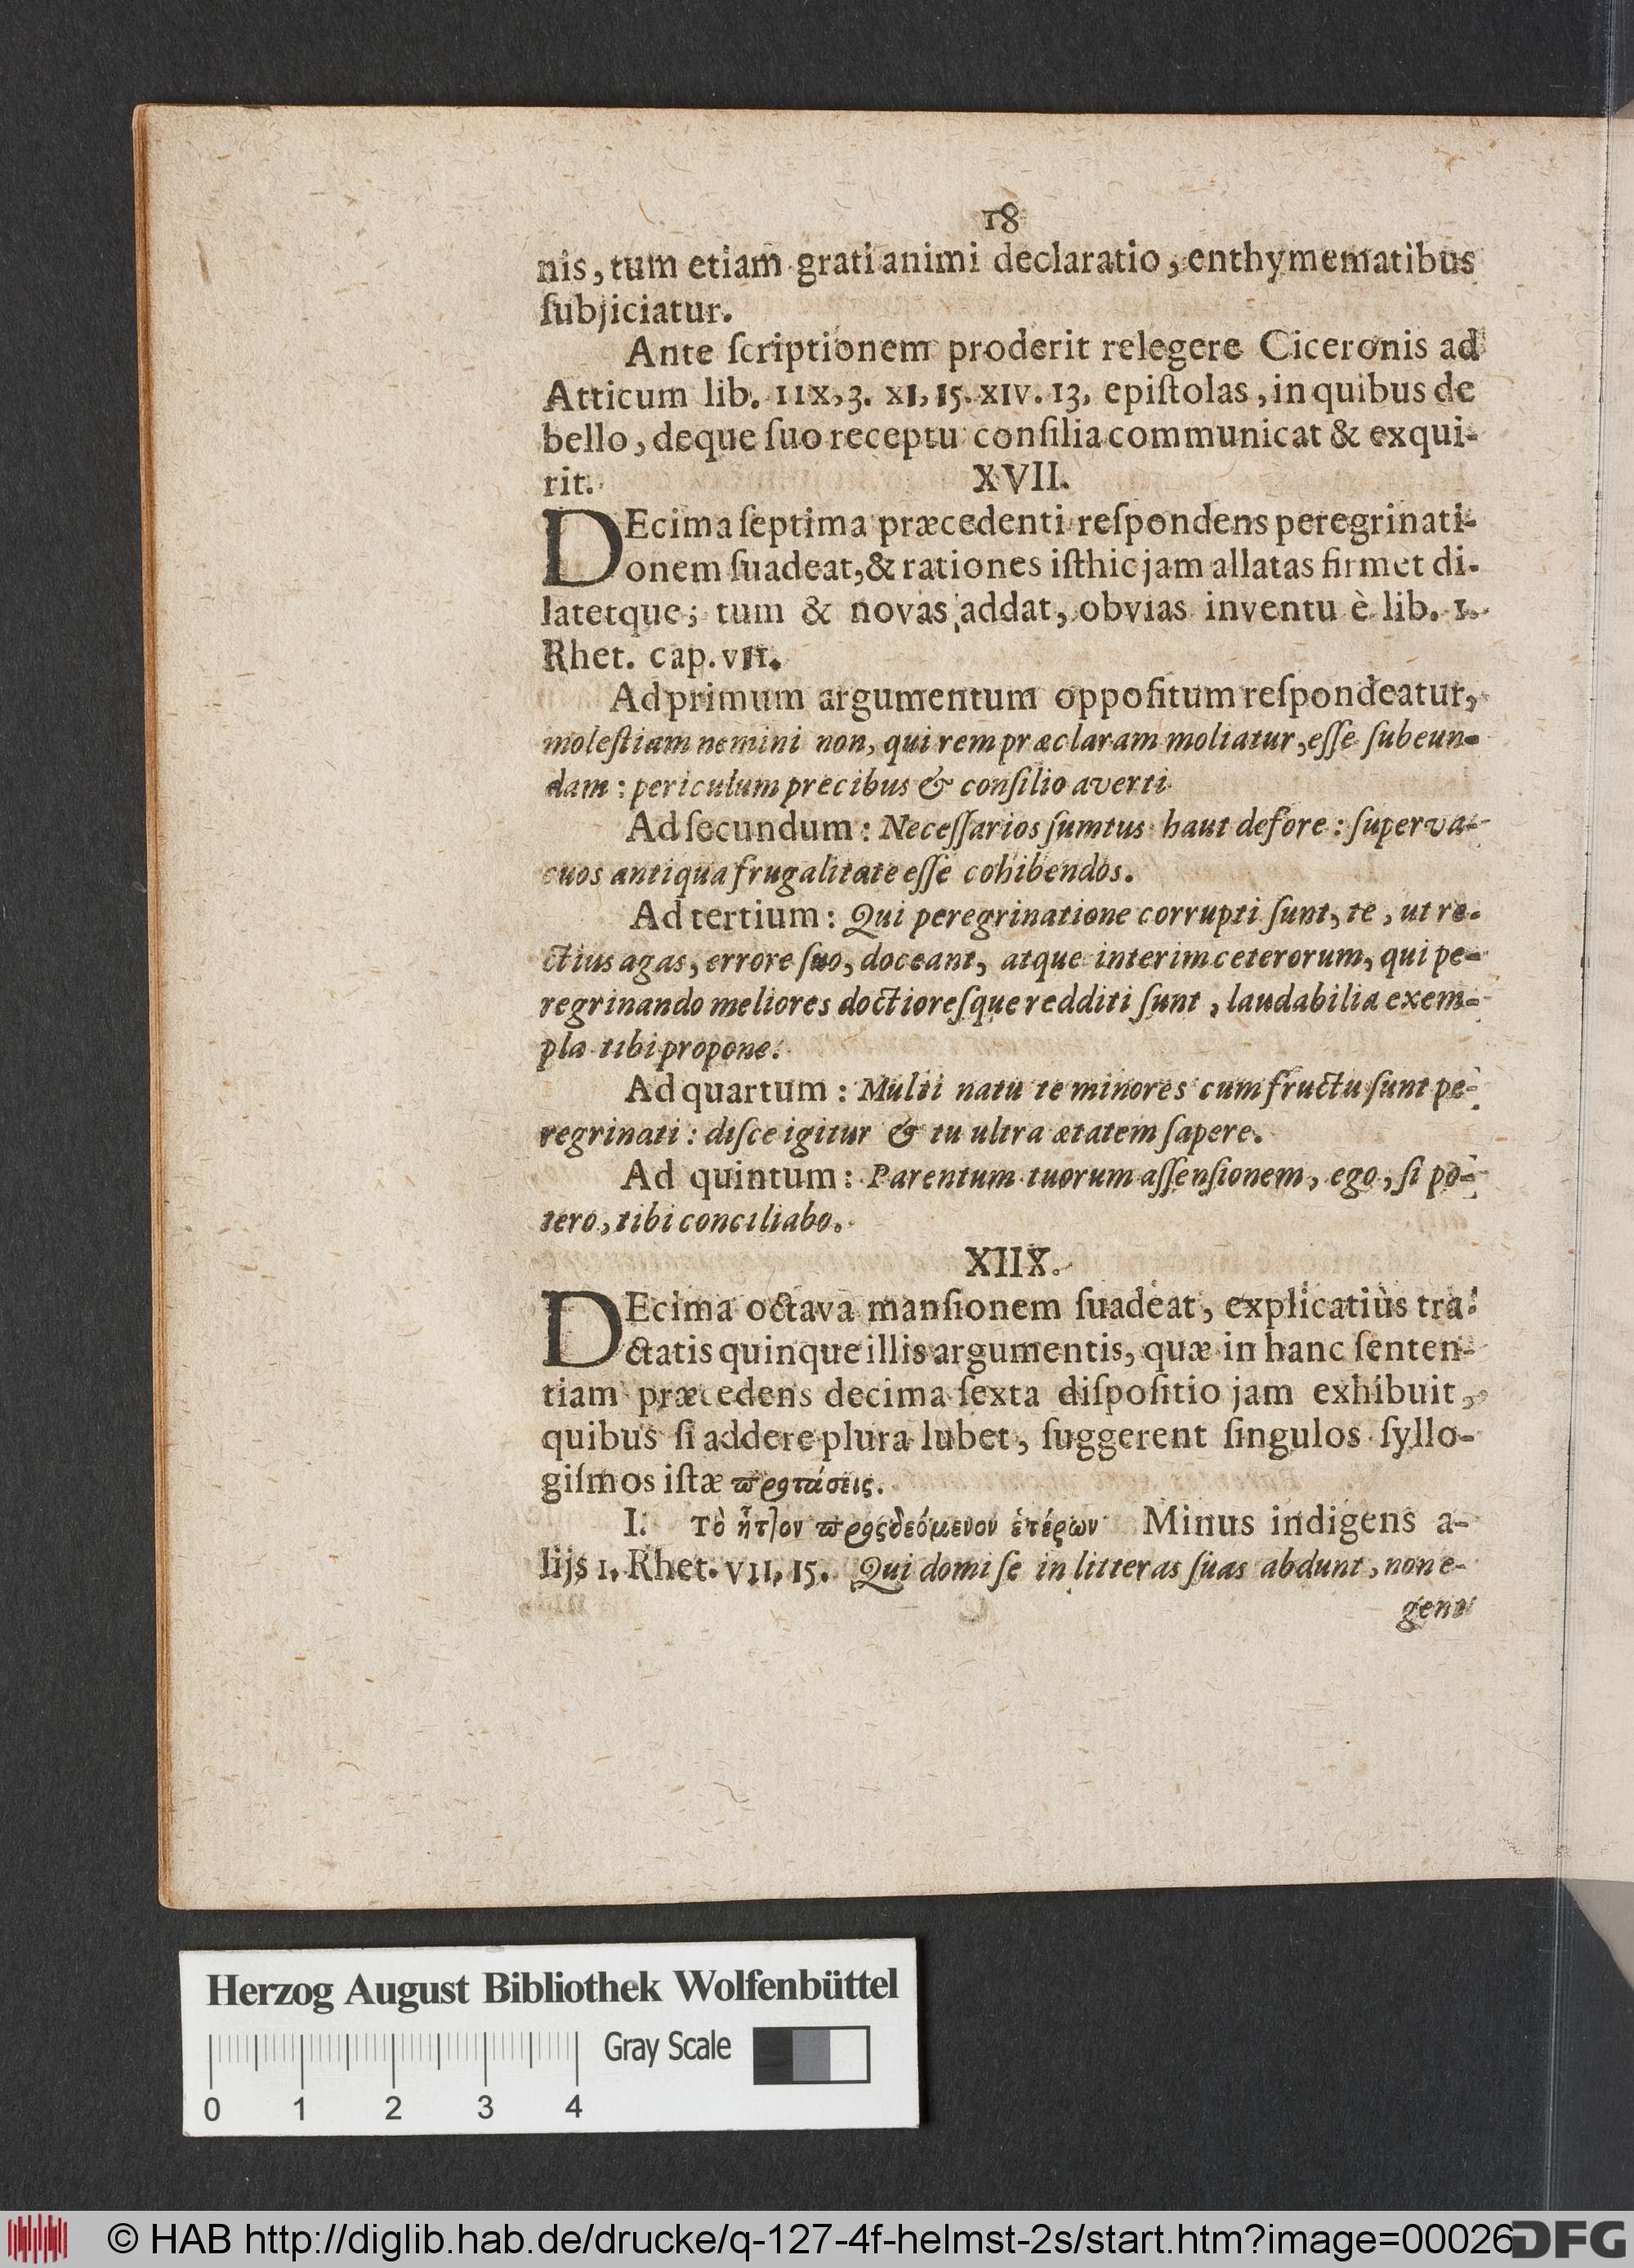 18
nis, tum etiam grati animi declaratio, enthymematibus
ſubjiciatur.
Ante ſcriptionem proderit relegere Ciceronis ad
Atticum lib. IIX, 3. XI, 15. XIV. 13, epiſtolas, in quibus de
bello, deque ſuo receptu conſilia communicat & exqui-
rit. XVII.
DEcima ſeptima præcedenti reſpondens peregrinati-
onem ſuadeat, & rationes iſthic jam allatas firmet di-
latetque; tum & novas addat, obvias inventu è lib. 1.
Rhet. cap. VII.
Ad primum argumentum oppoſitum reſpondeatur,
moleſtiam nemini non, qui rem præclaram moliatur, eſſe ſubeun-
dam: periculum precibus & conſilio averti
Ad ſecundum: Neceſſarios ſumtus haut defore: ſuperva-
cuos antiqua frugalitate eſſe cohibendos.
Ad tertium: Qui peregrinatione corrupti ſunt, te, ut re-
ctius agas, errore ſuo, doceant, atque interim ceterorum, qui pe-
regrinando meliores doctioreſque redditi ſunt, laudabilia exem-
pla tibi propone.
Ad quartum: Multi natu te minores cum fructu ſunt pe-
regrinati: diſce igitur & tu ultra ætatem ſapere.
Ad quintum: Parentum tuorum aſſenſionem, ego, ſi po-
tero, tibi conciliabo.
XIIX.
DEcima octava manſionem ſuadeat, explicatiùs tra-
ctatis quinque illis argumentis, quæ in hanc ſenten-
tiam præcedens decima ſexta diſpoſitio jam exhibuit,
quibus ſi addere plura lubet, ſuggerent ſingulos ſyllo-
giſmos iſtæ προτάσεις.
I. Τὸ ἧττον προςδεόμενον ἑτέρων Minus indigens a-
lijs 1. Rhet. VII, 15. Qui domi ſe in litteras ſuas abdunt, non e-
gent
Herzog August Bibliothek Wolfenbüttel
Gray Scale
0 1 2 3 4
© HAB http://diglib.hab.de/drucke/q-127-4f-helmst-2s/start.htm?image=00026
DFG